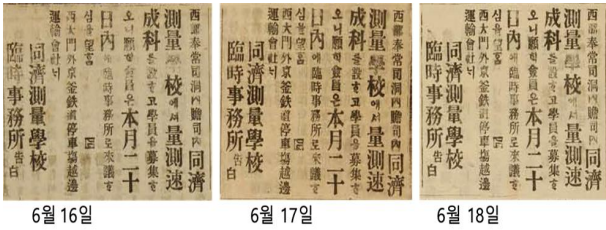 西部奉常司洞內贍司內同濟
測量學校에셔量測速
成科를設ᄒᆞ고學員을募集ᄒᆞ
오니願學會員은本月二十
日內에臨時事務所로來議ᄒᆞ
심을望홈
西大門外京釜鉄道停車場越邊
運輸會社너
同濟測量學校
臨時事務所 告白
6월 16일
西部奉常司洞內贍司內同濟
測量學校에셔量測速
成科를設ᄒᆞ고學員을募集ᄒᆞ
오니願學會員은本月二十
日內에臨時事務所로來議ᄒᆞ
심을望홈
西大門外京釜鉄道停車場越邊
運輸會社너
同濟測量學校
臨時事務所 告白
6월 17일
西部奉常司洞內贍司內同濟
測量學校에셔量測速
成科를設ᄒᆞ고學員을募集ᄒᆞ
오니願學會員은本月二十
日內에臨時事務所로來議ᄒᆞ
심을望홈
西大門外京釜鉄道停車場越邊
運輸會社너
同濟測量學校
臨時事務所 告白
6월 18일